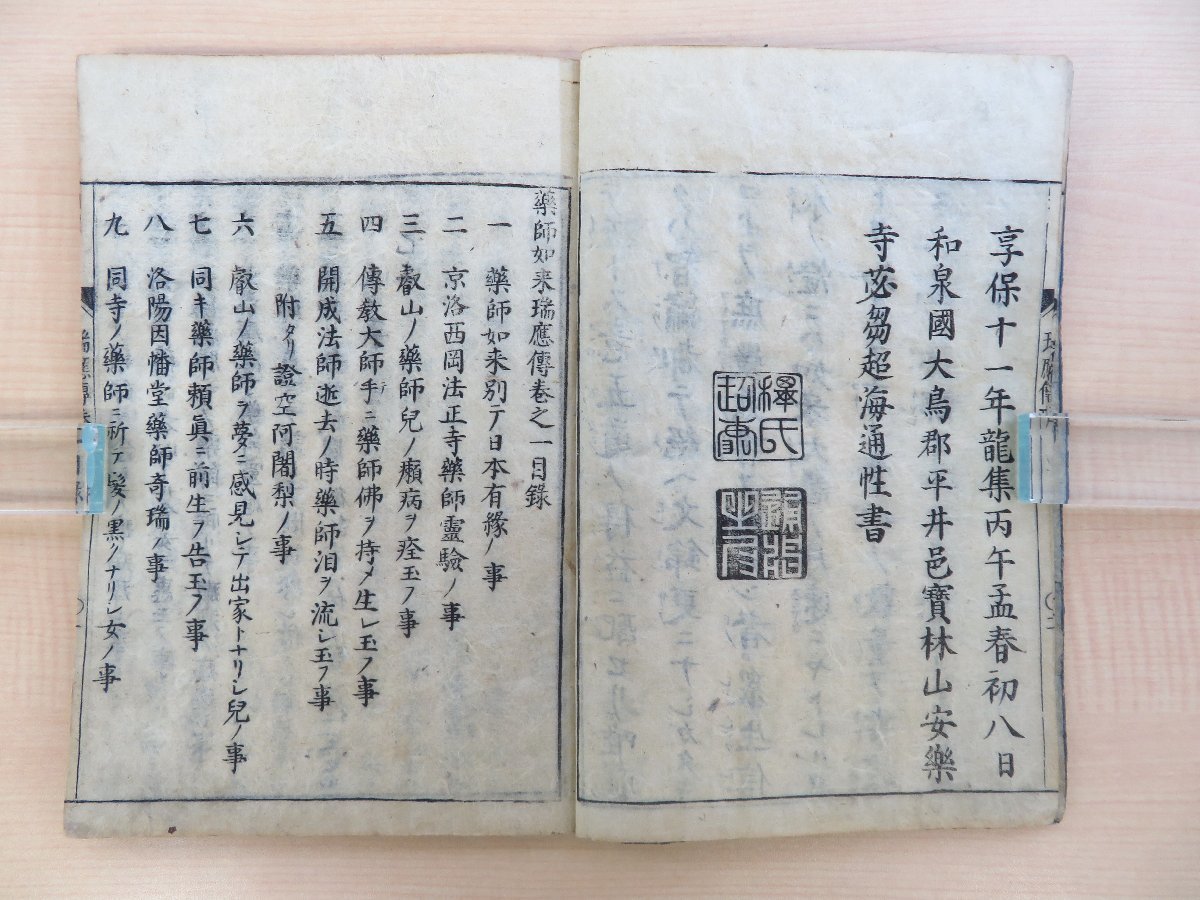 享保十一年龍集丙午孟春初八日
和泉國大鳥郡平井邑寶林山安樂
寺苾芻超海通性書
釋氏
超海
藥師如来瑞應傳巻之一目錄
一 藥師如来別テ日本有緣ノ事
二 京洛西岡法正寺藥師靈驗ノ事
三 叡山ノ藥師兒ノ癩病ヲ痊玉フ事
四 傳教大師手ニ藥師佛ヲ持メ生レ玉フ事
五 開成法師逝去ノ時藥師泪ヲ流シ玉フ事
附タリ 證空阿闍梨ノ事
六 叡山ノ藥師ヲ夢ニ感見シテ出家トナリシ兒ノ事
七 同キ藥師頼眞ニ前生ヲ告玉フ事
八 洛陽因幡堂藥師奇瑞ノ事
九 同寺ノ藥師ニ祈テ髮ノ黒クナリシ女ノ事